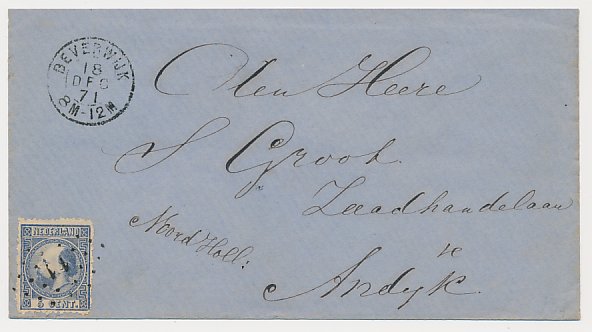 BEVERWIJK
18
DEC
71
8M-12M
Den Heere
S Groot.
Zaadhandelaar
Noord Holl:
te
Andijk.
NEDERLAND
5 CENT.